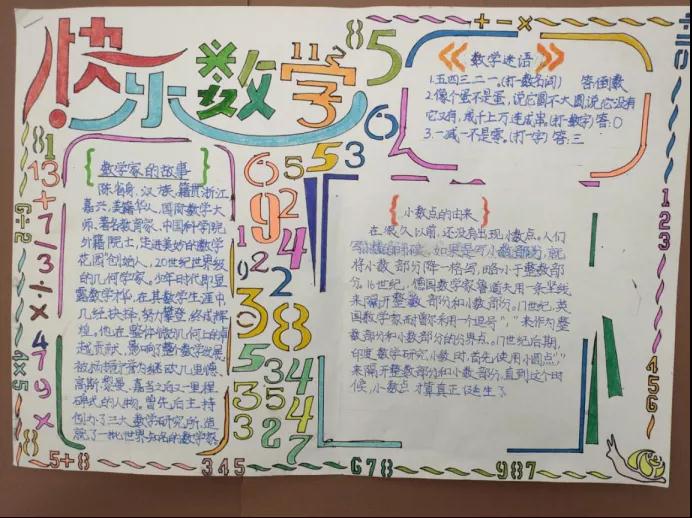 快乐数学
数学迷语
1.五四三二一。(打一数名词) 答:倒数
2.像个蛋不是蛋,说它圆不大圆,说它没有
它又有,成千上万连成串(打一数字)答:0
3.一减一不是零。(打一字) 答:三
数学家的故事
陈省身,汉族,籍贯浙江
嘉兴,美籍华人,国际数学大
师、著名教育家、中国科学院
外籍院士,走进美妙的数学
花园创始人,20世纪世界级
的几何学家。少年时代即显
露数学才华,在其数学生涯中,
几经抉择,努力攀登,终成辉
煌。他在整体微分几何上的卓
越贡献,影响了整个数学发展,
被杨振宁誉为继欧几里德、
高斯、黎曼、嘉当之后又一里程
碑式的人物。曾先后主持
创办了三大数学研究所,造
就了一批世界知名的数学家。
小数点的由来
在很久以前,还没有出现小数点。人们
写小数的时候,如果是写小数部分,就
将小数部分降一格写,略小于整数部
分。16世纪,德国数学家鲁道夫用一条竖线
来隔开整数部分和小数部分。17世纪,英
国数学家耐普尔采用一个逗号","来作为整
数部分和小数部分的分界点。17世纪后期,
印度数学研究小数时,首先使用小圆点"."
来隔开整数部分和小数部分,直到这个时
候,小数点才算真正诞生了
5+8
345
678
987
123
456
4×5